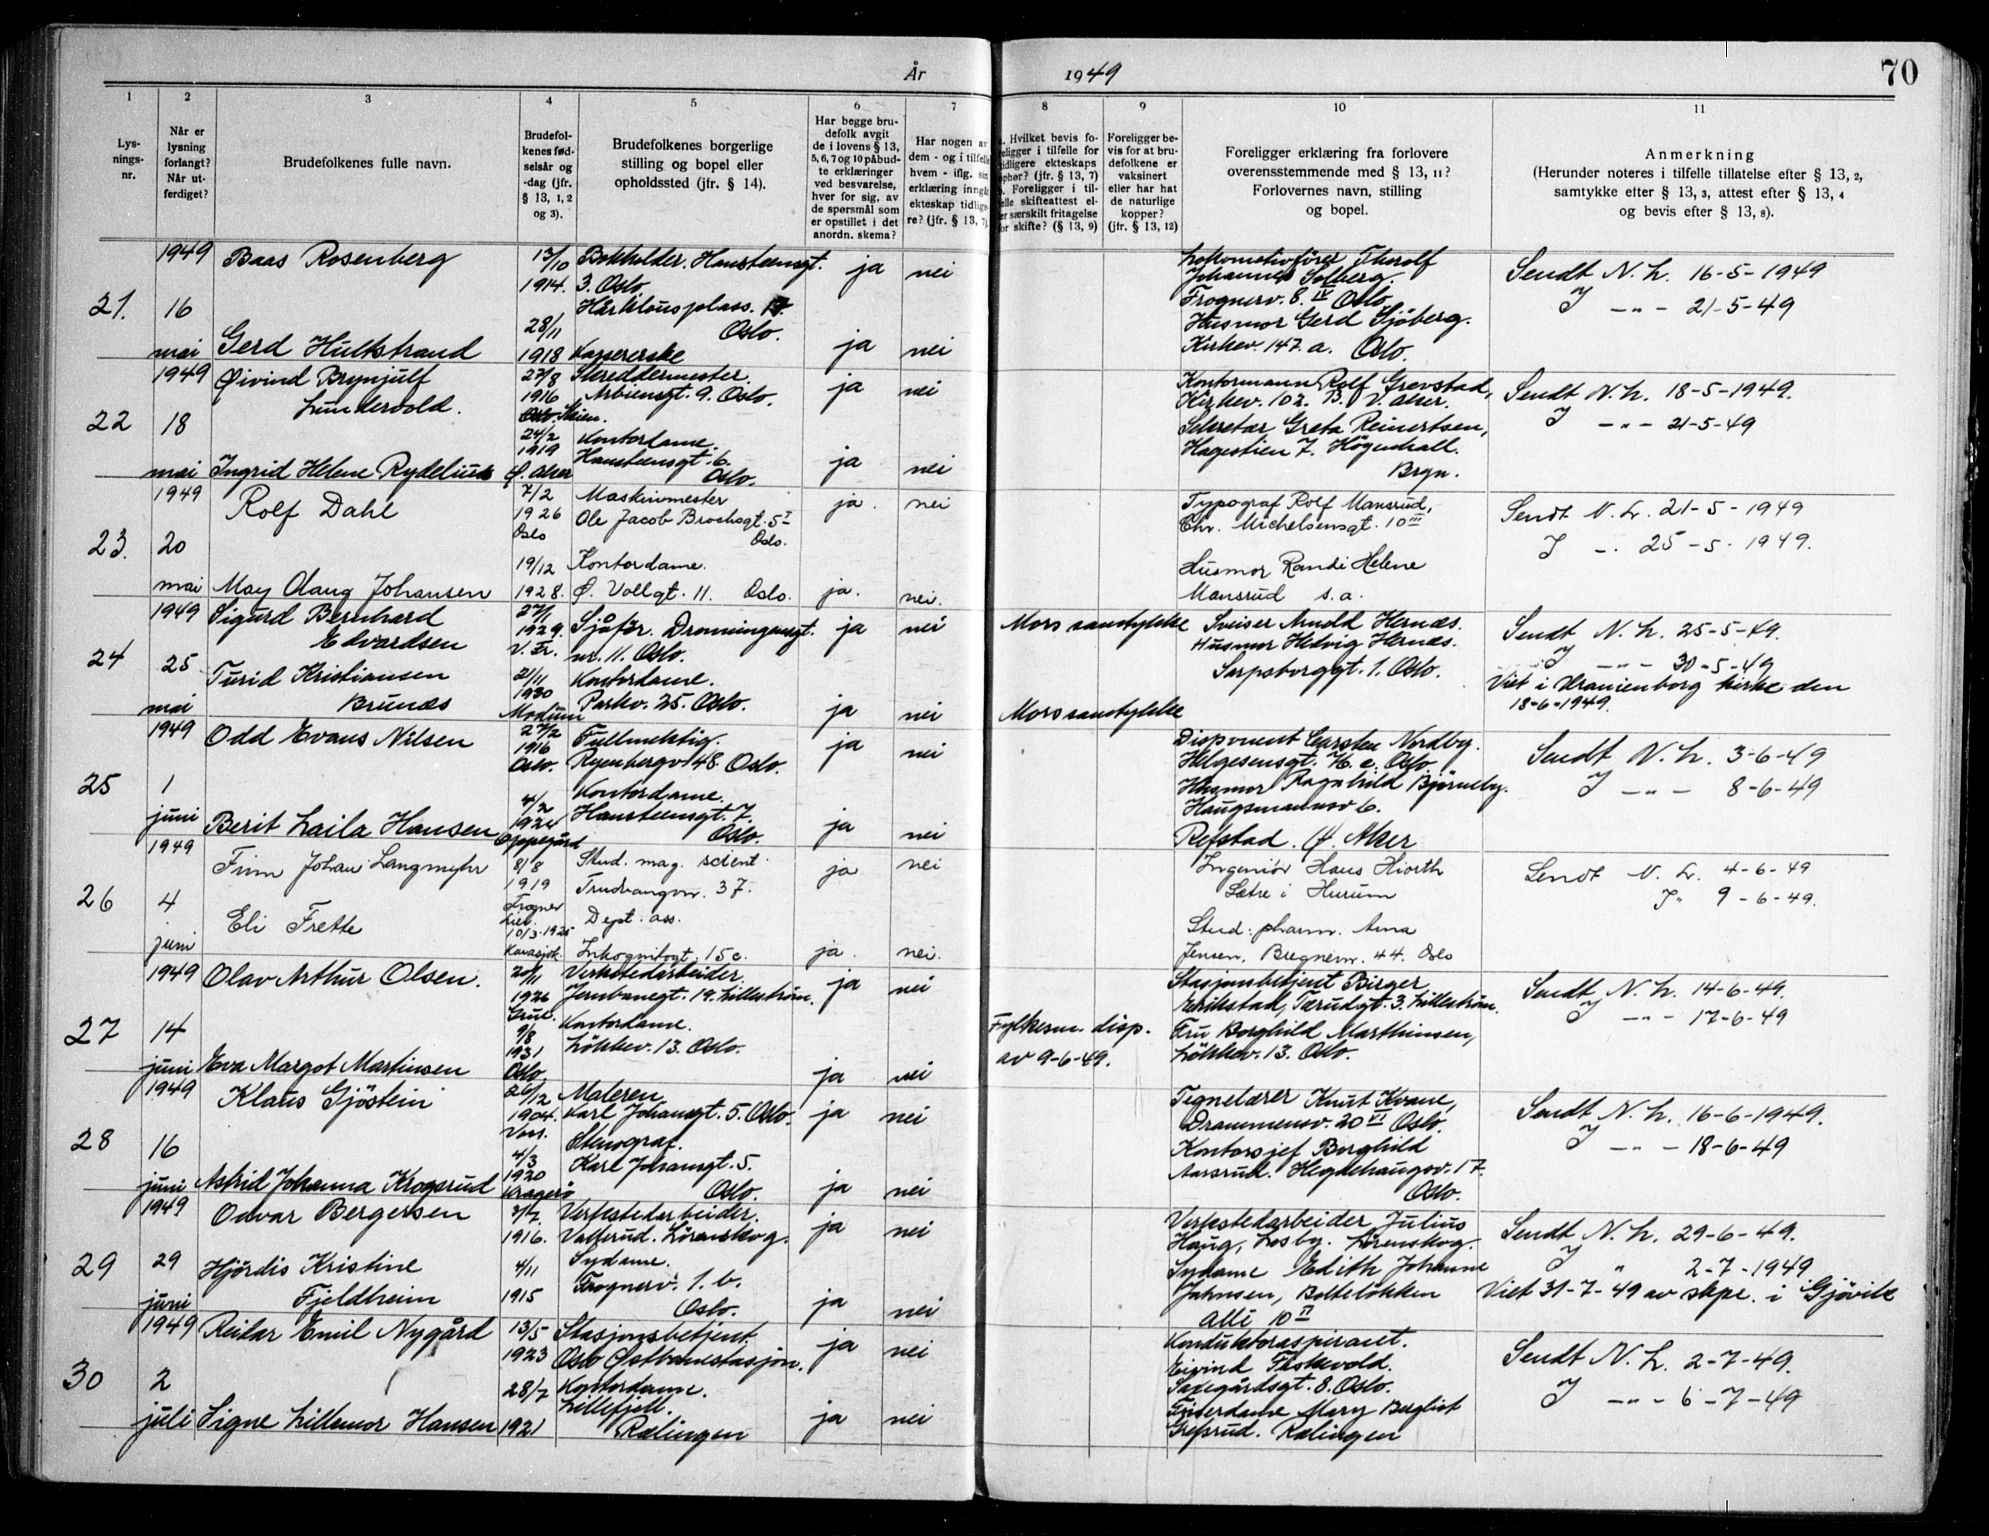 År 1949
70
1 2 3 4 5 6 7 8 9 10 11
Lys-
nings-
nr.
Når er
lysning
forlangt?
Når ut-
ferdiget?
Brudefolkenes fulle navn.
Brudefol-
kenes fød-
selsår og
-dag (jfr.
§ 13, 1, 2
og 3).
Brudefolkenes borgerlige
stilling og bopel eller
opholdssted (jfr. § 14).
Har begge bru-
defolk avgit
de i lovens § 13,
5, 6, 7 og 10 påbud-
te erklæringer
ved besvarelse,
hver for sig, av
de spørsmål som
er opstillet i det
anordn. skema?
Har nogen av
dem - og i tilfelle
hvem - iflg. sin
erklæring inngått
ekteskap tidlige-
re? (jfr. § 13, 7)
Hvilket bevis fo-
religger i tilfelle for
tidligere ekteskaps
ophør? (jfr. § 13, 7)
Foreligger i til-
felle skifteattest el-
ler særskilt fritagelse
for skifte? (§ 13, 9)
Foreligger be-
vis for at bru-
defolkene er
vaksinert
eller har hat
de naturlige
kopper?
(jfr. § 13, 12)
Foreligger erklæring fra forlovere
overensstemmende med § 13, 11?
Forlovernes navn, stilling
og bopel.
Anmerkning
(Herunder noteres i tilfelle tillatelse efter § 13, 2,
samtykke efter § 13, 3, attest efter § 13, 4
og bevis efter § 13, 8).
21. 1949 16 mai
Baas Rosenberg
13/10 1914.
Bokholder. Hansteensgt.
3. Oslo.
ja nei
Gerd Hultstrand
28/11 1918
Oslo.
Kassererske
ja nei
Lokomotivfører Thorolf
Johannes Solberg.
Frognerv. 8. IV Oslo.
Husmor Gerd Sjöberg.
Kirkev. 147. a. Oslo.
Sendt N. L. 16-5-1949
J -"- 21-5-49
22 1949 18 mai
Øivind Brynjulf
Lundervold.
27/8 1916
Skreddermester.
Arbiensgt. 9. Oslo.
ja nei
Ingrid Helene Rydelius
24/2 1919 Ø. Aker
Kontordame.
Hansteensgt. 6.
Oslo.
ja nei
Kontormann Rolf Grevstad,
Kirkev. 102. B. V. Aker.
Sekretær Greta Reinertsen,
Hagestien 7. Högenhall.
Bryn.
Sendt N. L. 18-5-1949.
J -"- 21-5-49
23. 1949 20 mai
Rolf Dahl
7/2 1926 Oslo
Maskinmester
Ole Jacob Brochsgt. 5 I
Oslo.
ja. nei
May Olaug Johansen
19/12 1928.
Kontordame.
Ø. Vollgt. 11. Oslo.
ja. nei.
Typograf Rolf Mansrud,
Chr. Michelsensgt. 10 III
Husmor Randi Helene
Mansrud s. a.
Sendt N. L. 21-5-1949
J -. 25-5-1949.
24 1949 25 mai
Sigurd Bernhard
Edvardsen
27/1 1929. V. Fr.
Sjåfør. Dronningensgt.
nr. 11. Oslo.
ja nei
Mors samtykke
Turid Kristiansen
Brunæs
21/11 1930 Modum
Kontordame.
Parkv. 25. Oslo.
ja nei
Mors samtykke
Sveiser Arnold Hernæs.
Husmor Hedvig Hernæs.
Sarpsborggt. 1. Oslo.
Sendt N. L. 25-5-49.
J -"- 30-5-49
Viet i Uranienborg kirke den
18-6-1949.
25 1949 1 juni
Odd Evans Nilsen
27/2 1916 Oslo.
Fullmektig.
Ryenbergv 48. Oslo.
ja nei
Berit Laila Hansen
4/2 1924 Oppegård
Kontordame.
Hansteensgt. 7.
Oslo.
ja nei
Disponent Carsten Nordby.
Helgesensgt. Oslo
Husmor Ragnhild Bjørneby.
Haugsmannsv 6.
Refstad. Ø. Aker
Sendt N. L. 3-6-49
J -"- 8-6-49
26 1949 4 juni
Finn Johan Langmyhr
8/8 1919 Frogner
Stud. mag. scient.
Trudvangvn. 37.
ja nei
Eli Frette
10/3-1925
Dept. ass.
Inkognitogt. 15 c.
ja. nei.
Ingeniør Hans Hiorth
Sætre i Hurum
Stud. pharm. Arna
Jensen, Bregnevn. 44. Oslo
Sendt N. L. 4-6-49
J " 9-6-49.
27 1949 14 juni
Olav Arthur Olsen.
20/11 1926 Grue.
Verkstedarbeider.
Jernbanegt. 19. Lillestrøm.
ja nei
Eva Margot Martinsen
9/8 1931 Oslo
Kontordame.
Løkkev. 13. Oslo.
ja nei
Fylkesm. disp.
av 9-6-49.
Stasjonsbetjent Birger
Erikstad, Tærudgt. 3. Lillestrøm.
Fru Borghild Marthinsen,
Løkkev. 13. Oslo.
Sendt N. L. 14-6-49.
J -"- 17-6-49
28 1949 16 juni
Klaus Gjöstein
26/12 1904. Voss.
Maleren.
Karl Johansgt. 5. Oslo.
ja nei
Astrid Johanna Krogsrud
4/3 1920 Kragerø
Stenograf.
Karl Johansgt. 5.
Oslo.
ja nei
Tegnelærer Knut Kvane,
Drammensv. 20 VI Oslo.
Kontorsjef Borghild
Aarsrud. Hegdehaugsv. 17.
Oslo.
Sendt N. L. 16-6-1949.
J -"- 18-6-49
29 1949 29 juni
Odvar Bergersen
3/7. 1916.
Verkstedarbeider.
Vallerud. Lörenskog.
ja nei
Hjördis Kristine
Fjeldheim
4/11 1915
Sydame.
Frognerv. 1. b.
Oslo.
ja nei
Verkstedarbeider Julius
Haug, Losby. Lörenskog.
Sydame Edith Johanne
Jahnsen, Bolteløkken
Alli 10 II
Sendt N. L. 29-6-49.
J " 2-7-1949
Viet 31-7-49 av skpr. i Gjövik
30 1949 2 juli
Reidar Emil Nygård
13/5 1923
Stasjonsbetjent.
Oslo Østbanestasjon.
ja nei
Signe Lillemor Hansen
28/7 1921
Kontordame.
Lillefjell.
Rælingen
ja nei
Konduktøraspirant.
Eivind Thokvold.
Saxegårdsgt. 8. Oslo.
Mary Bergliot
Grefsrud. Rælingen
Sendt N. L. 2-7-49.
J -"- 6-7-49